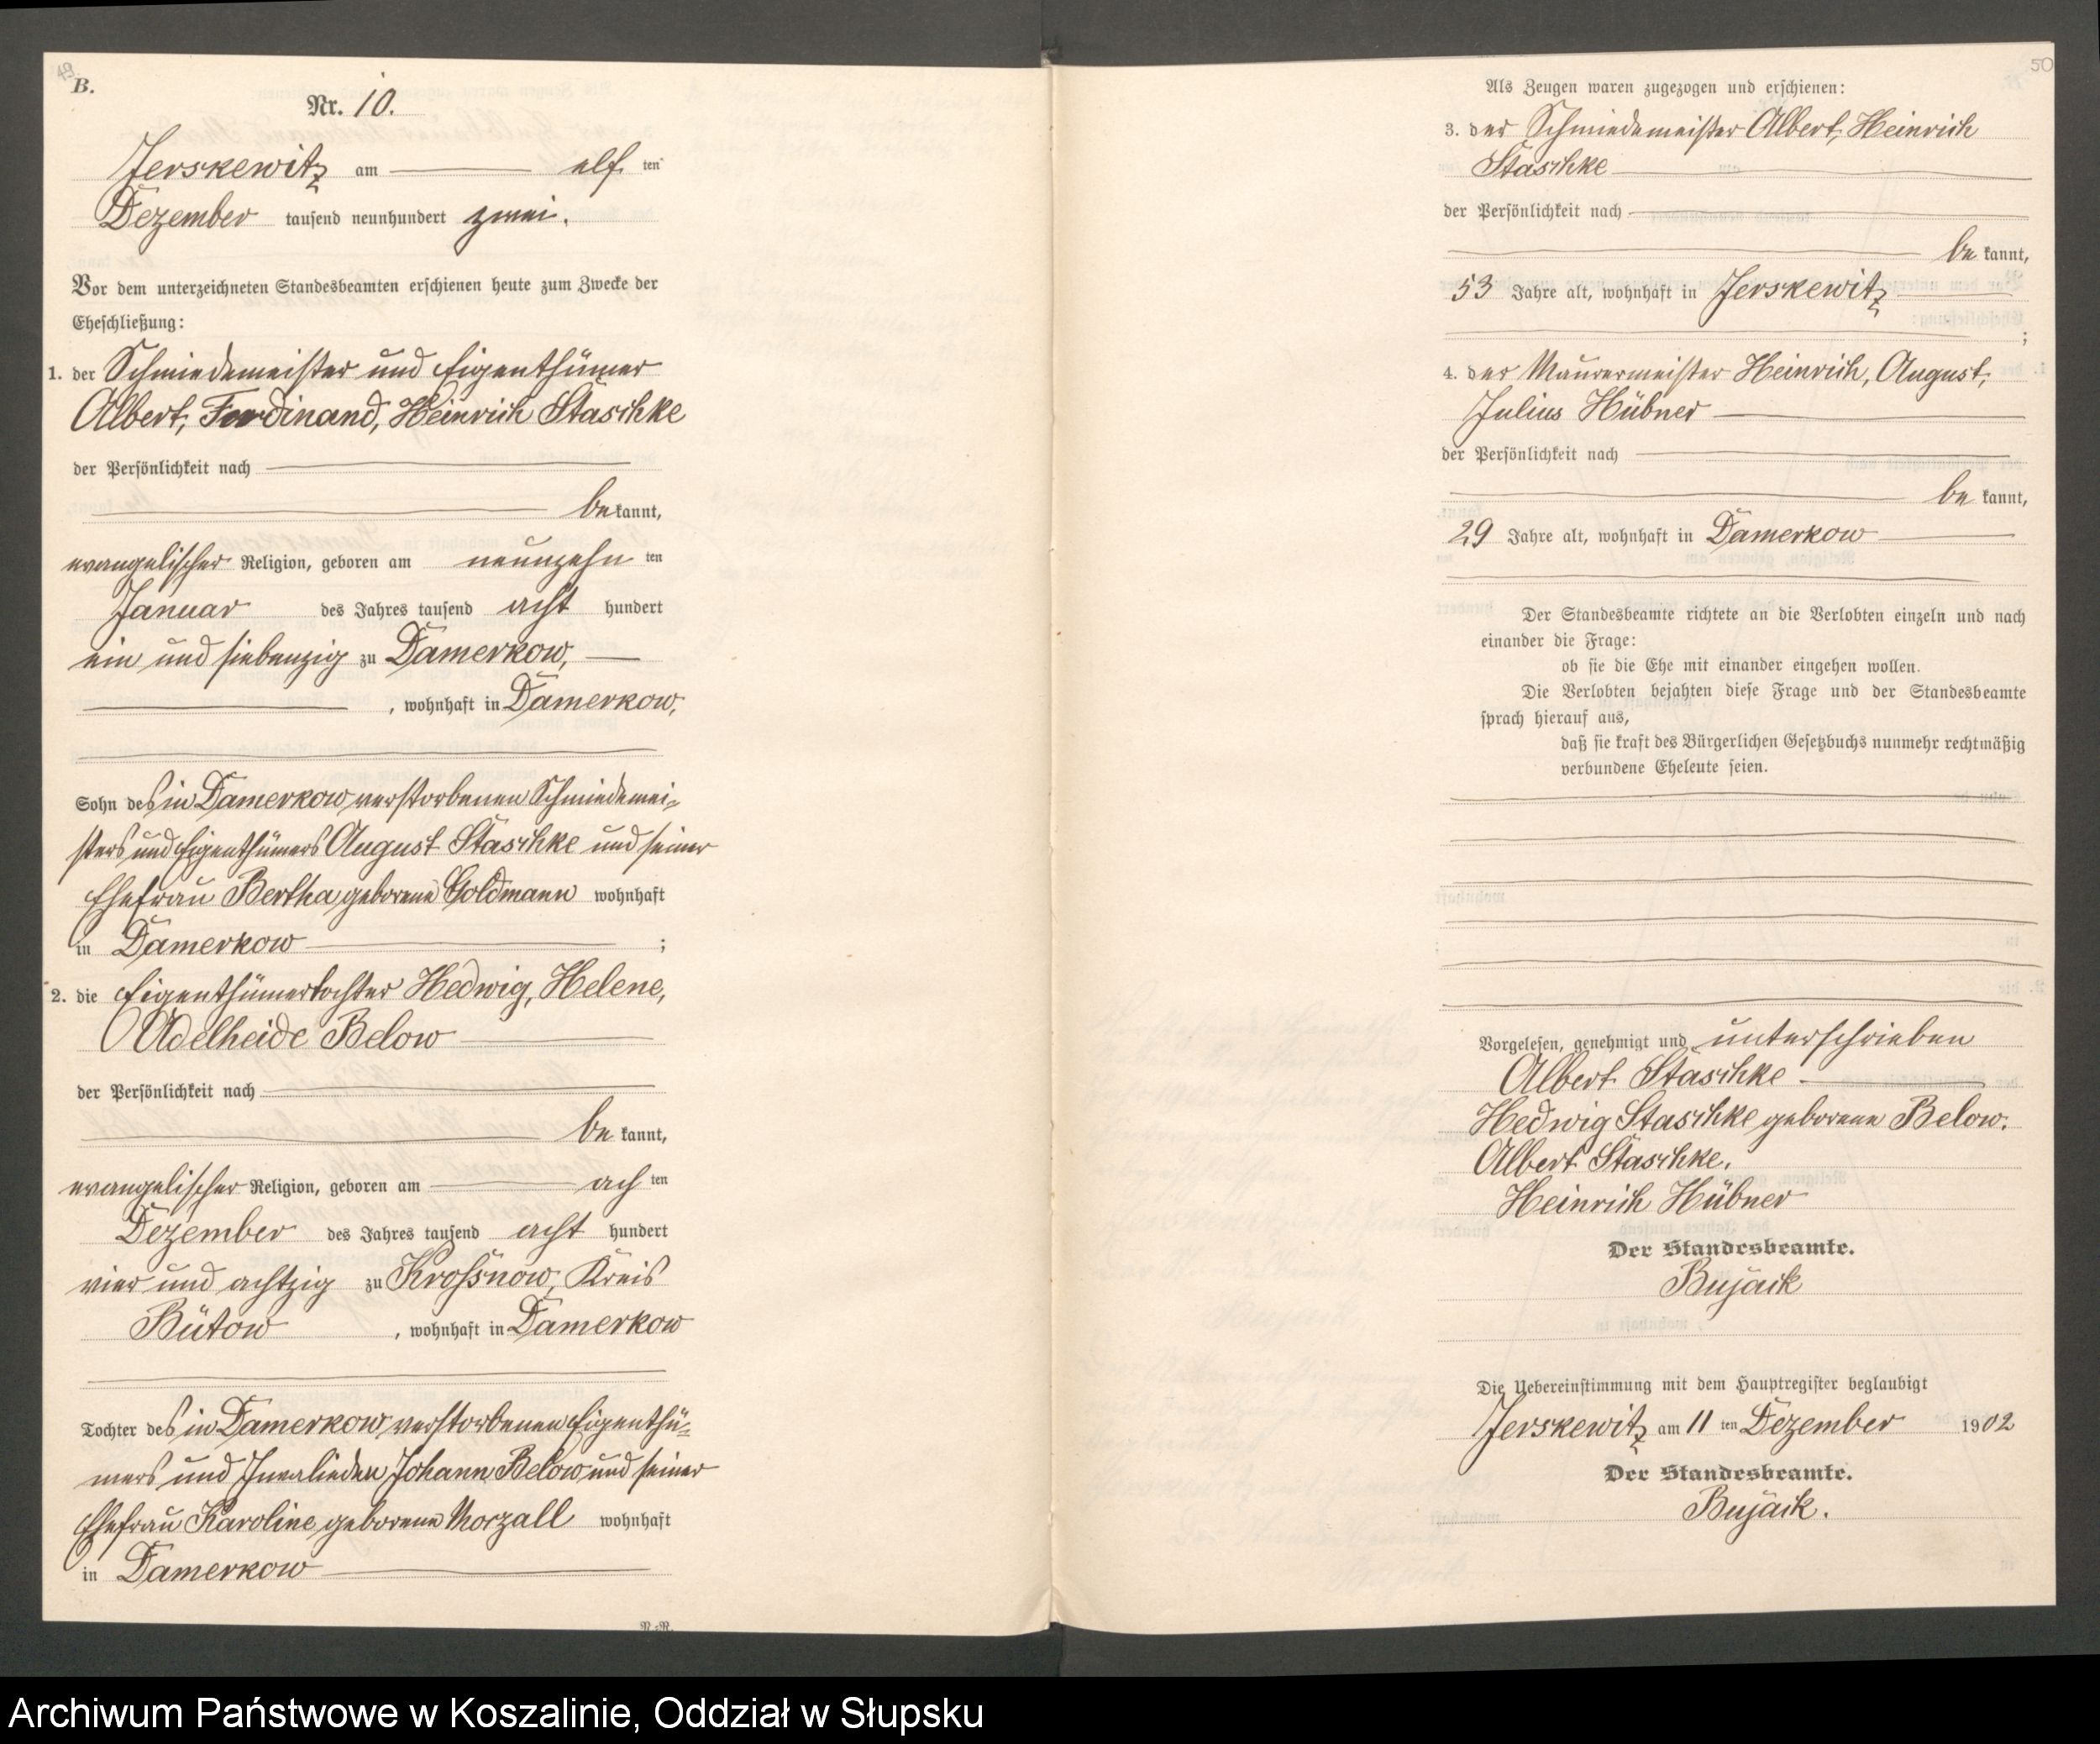 49
B.
Nr. 10.
Jerskewitz am elf ten
Dezember tausend neunhundert zwei.
Vor dem unterzeichneten Standesbeamten erschienen heute zum Zwecke der
Eheschließung:
1. der Schmiedemeister und Eigenthümer
Albert, Ferdinand, Heinrich Staschke
der Persönlichkeit nach
be kannt,
evangelischer Religion, geboren am neunzehn ten
Januar des Jahres tausend acht hundert
ein und siebenzig zu Damerkow,
, wohnhaft in Damerkow,
Sohn des in Damerkow verstorbenen Schmiedemei-
sters und Eigenthümers August Staschke und seiner
Ehefrau Bertha geborene Goldmann wohnhaft
in Damerkow ;
2. die Eigenthümertochter Hedwig, Helene,
Adelheide Below
der Persönlichkeit nach
be kannt,
evangelischer Religion, geboren am ach ten
Dezember des Jahres tausend acht hundert
vier und achtzig zu Krossnow, Kreis
Bütow , wohnhaft in Damerkow
Tochter des in Damerkow verstorbenen Eigenthü-
mers und Invalieden Johann Below und seiner
Ehefrau Karoline geborene Morzall wohnhaft
in Damerkow
50
Als Zeugen waren zugezogen und erschienen:
3. der Schmiedemeister Albert, Heinrich
Staschke
der Persönlichkeit nach
be kannt,
53 Jahre alt, wohnhaft in Jerskewitz
;
4. der Maurermeister Heinrich, August,
Julius Hübner
der Persönlichkeit nach
be kannt,
29 Jahre alt, wohnhaft in Damerkow
Der Standesbeamte richtete an die Verlobten einzeln und nach
einander die Frage:
ob sie die Ehe mit einander eingehen wollen.
Die Verlobten bejahten diese Frage und der Standesbeamte
sprach hierauf aus,
daß sie kraft des Bürgerlichen Gesetzbuchs nunmehr rechtmäßig
verbundene Eheleute seien.
Vorgelesen, genehmigt und unterschrieben
Albert Staschke
Hedwig Staschke geborene Below.
Albert Staschke.
Heinrich Hübner
Der Standesbeamte.
Bujack
Die Uebereinstimmung mit dem Hauptregister beglaubigt
Jerskewitz am 11 ten Dezember 1902
Der Standesbeamte.
Bujack.
Archiwum Państwowe w Koszalinie, Oddział w Słupsku